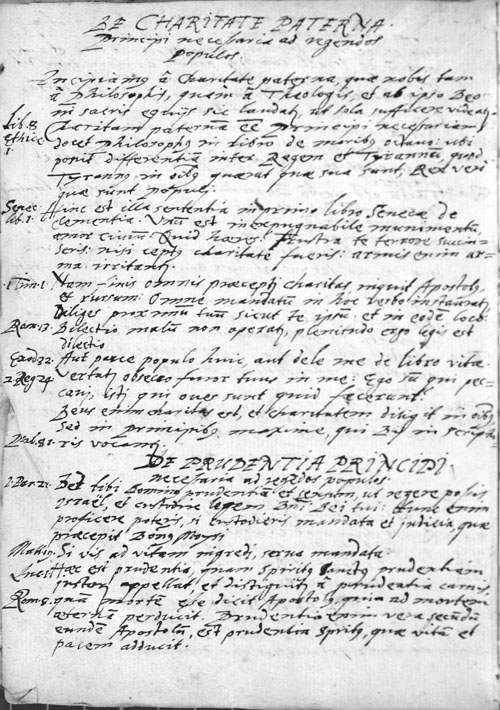 DE CHARITATE PATERNA.
Principi necessaria ad regendos
populos.
Incipiamus à Charitate paterna, quæ nobis tam
à Philosophis, quam à Theologis, et ab ipso Deo
in sacris eloquijs sic laudatur ut sola sufficere videatur
Lib. 8 Charitatem paternā eē Principi necessariam
Ethicor. docet Philosophus in libro de moribus octauo: ubi
1. ponit differentiā inter Regem et Tyrannū, quod
Tyrannus in oībus quærat quæ sua sunt, Rex vero
quæ sunt populi.
Senec. Hinc est illa sententia in primo libro Senecæ de
lib. 1. clementia. Vnū est inexpugnabile munimentū,
amor ciuiū. Quid hæres? Frustra te terrore succin-
xeris: nisi septus charitate fueris: armis enim ar-
ma irritantur.
1 Tim. 1. Nam finis omnis præcepti charitas inquit Apostolus,
et rursum: Omne mandatum in hoc verbo instauratur
Diliges proximū tuum sicut te ipsū: et in eodē loco:
Rom. 13. Dilectio malū non operatur, plenitudo ergo legis est
dilectio.
Exod. 32. Aut parce populo huic, aut dele me de libro vitæ.
2. Reg. 24. Vertatur obsecro furor tuus in me: Ego sū qui pec-
caui, isti qui oues sunt quid fecerunt?
Deus enim charitas est, et charitatem diligit in oībus
sed in principibus maxime, qui Dij in scriptu-
Psal. 81. ris vocantur.
DE PRUDENTIA PRINCIPI
necessaria ad regēdos populos.
Det tibi Dominus prudentiā et sensum, ut regere possis
Israël, et custodire legem Dni Dei tui: tunc enim
proficere poteris, si custodieris mandata et iudicia, quæ
præcepit Dominus Moysi
Si vis ad vitam ingredi, serua mandata
Hæc est prudentia, quam Spiritus Sanctus prudentiam
iustorū appellat, et distinguit à prudentia carnis,
quam mortē esse dicit Apostolus, quia ad mortem
æternā perducit. Prudentia enim vera secundū
eundē Apostolū, est prudentia Spiritus, quæ vitā et
pacem adducit.